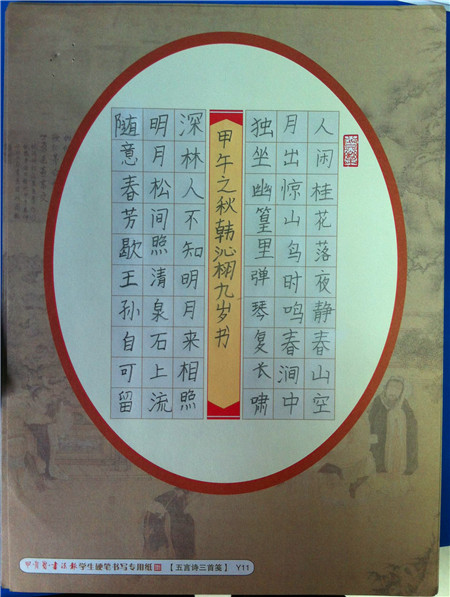 人闲桂花落夜静春山空
月出惊山鸟时鸣春涧中
独坐幽篁里弹琴复长啸
甲午之秋韩沁栩九岁书
深林人不知明月来相照
明月松间照清泉石上流
随意春芳歇王孙自可留
【五言诗三首笺】 Y11